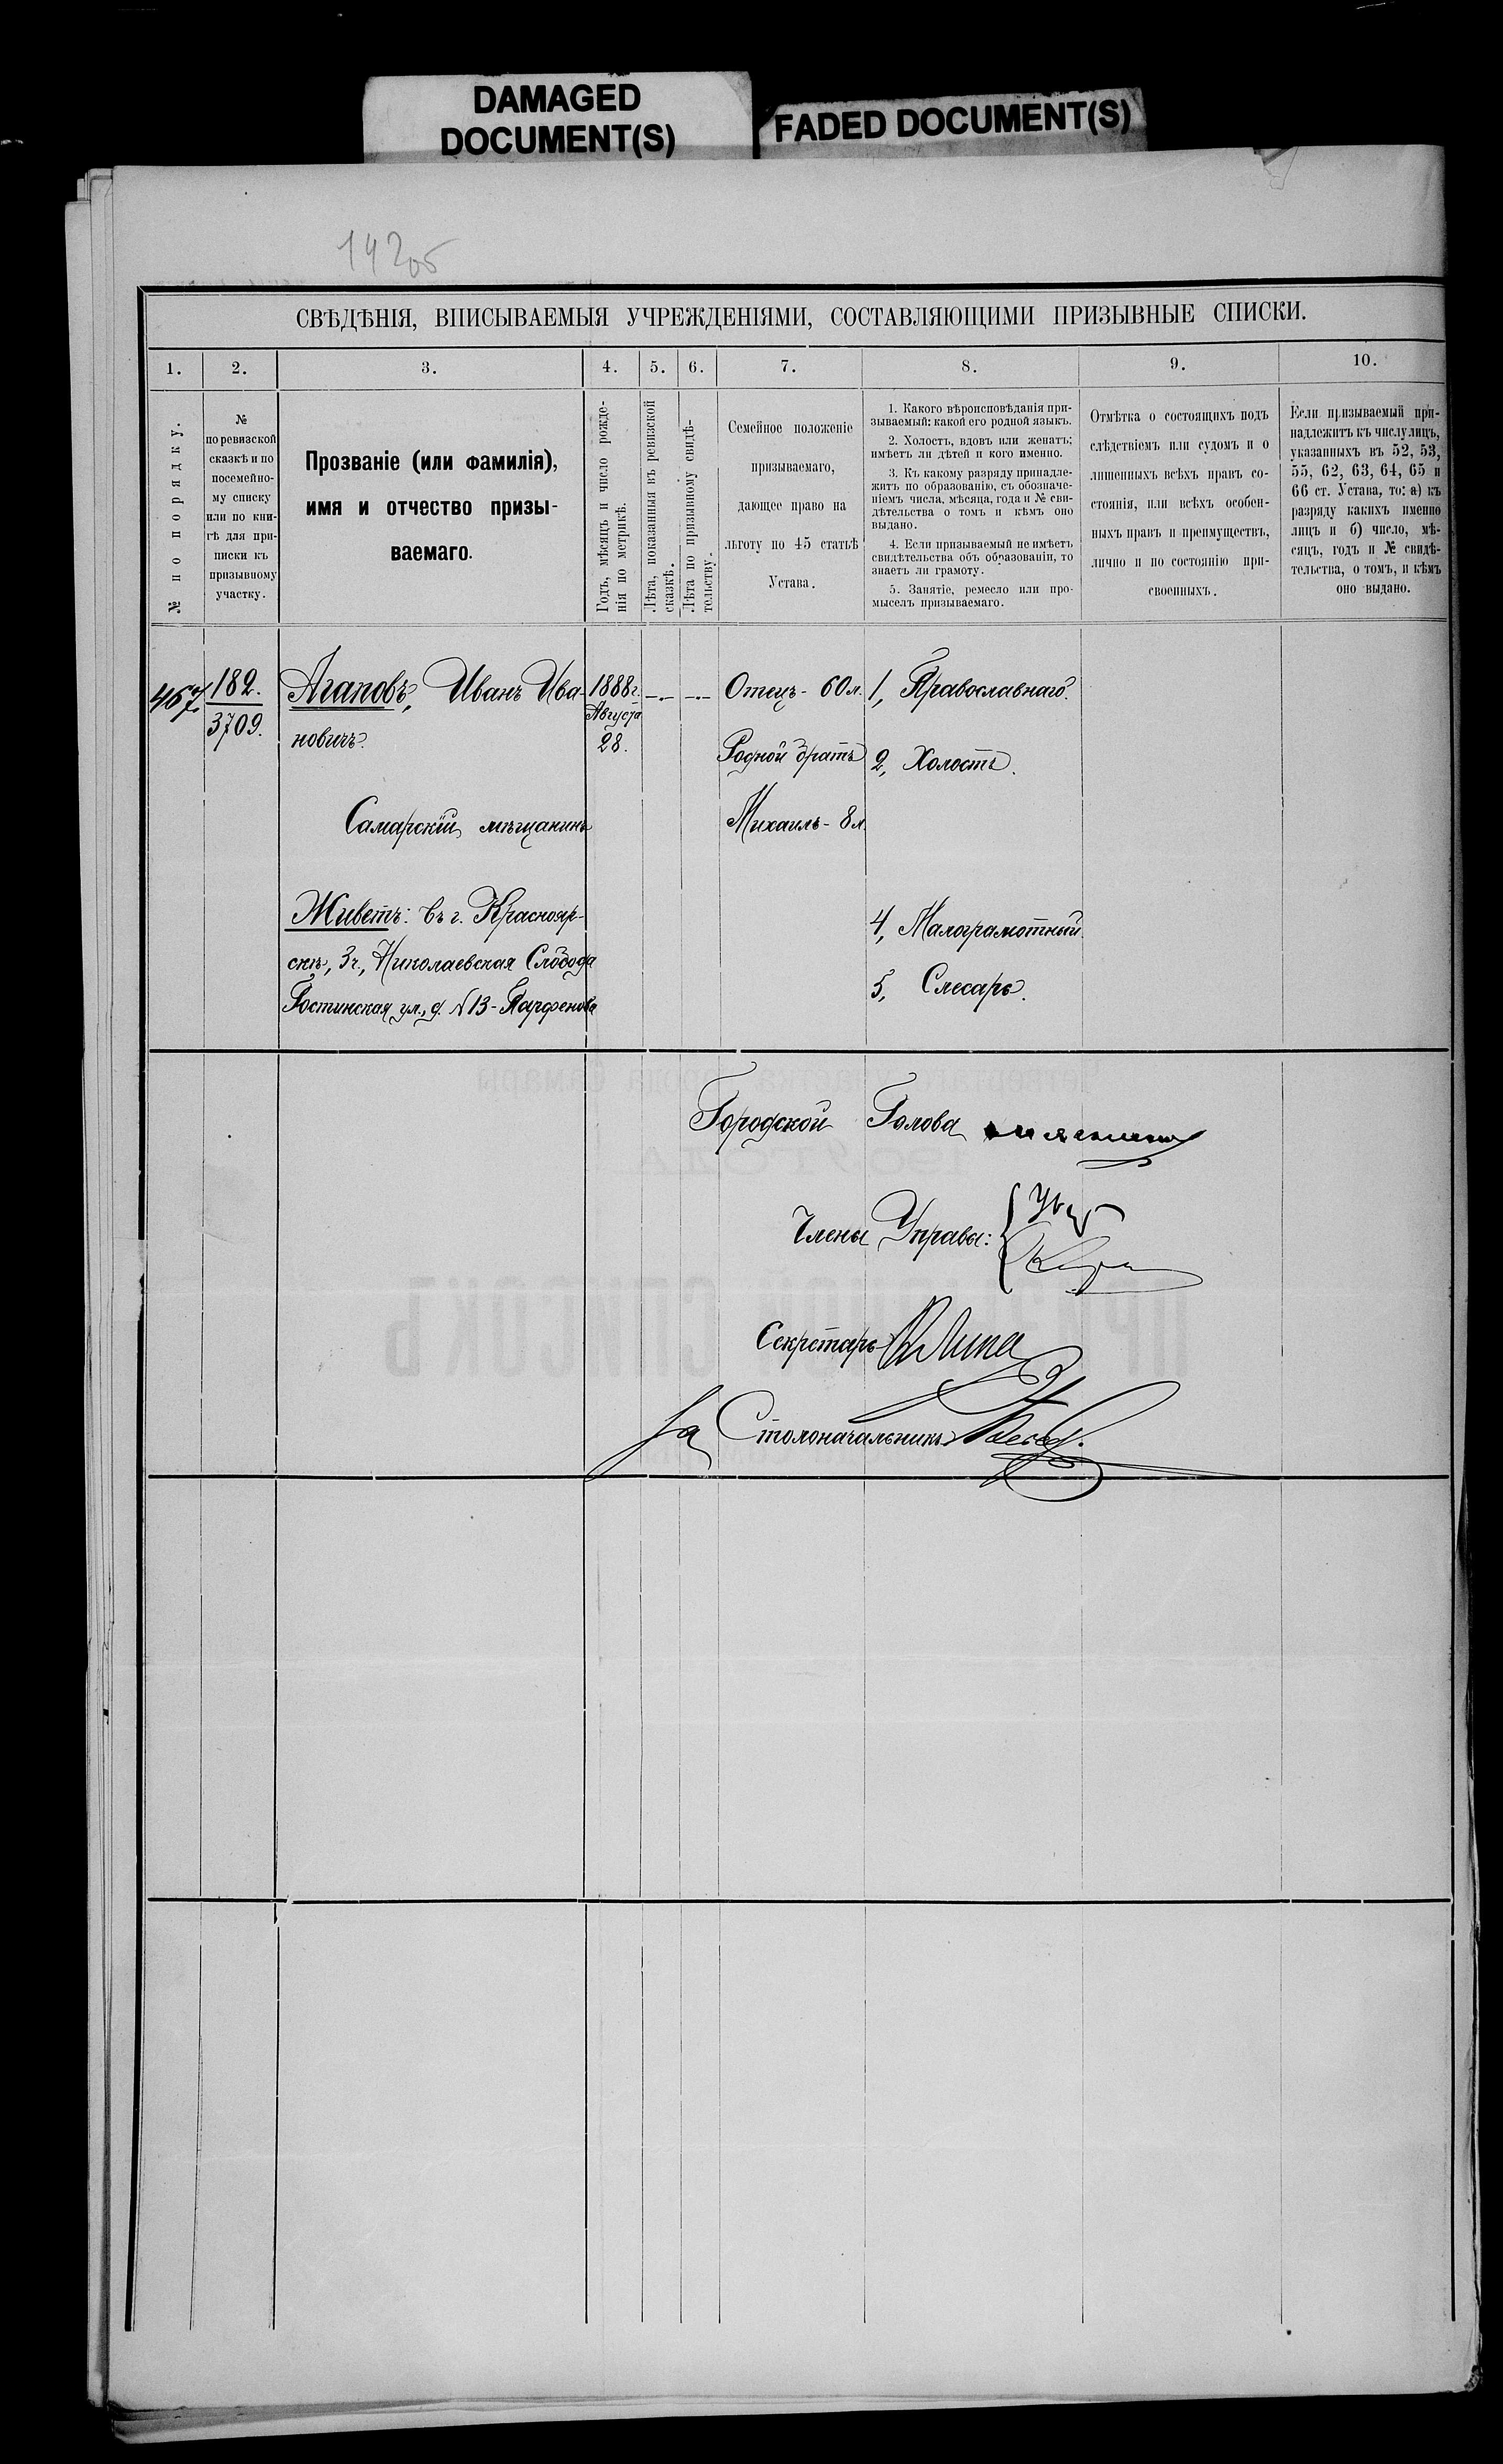 DAMAGED
DOCUMENT(S)
FADED DOCUMENT(S)
СВѢДѢНІЯ, ВПИСЫВАЕМЫЯ УЧРЕЖДЕНІЯМИ, СОСТАВЛЯЮЩИМИ ПРИЗЫВНЫЕ СПИСКИ.
1. 2. 3. 4. 5. 6. 7. 8. 9. 10.
№ по порядку.
№
по ревизской
сказкѣ и по
посемейно-
му списку
или по кни-
гѣ для при-
писки къ
призывному
участку.
Прозваніе (или фамилія),
имя и отчество призы-
ваемаго.
Годъ, мѣсяцъ и число рожде-
нія по метрикѣ.
Лѣта, показанныя въ ревизской
сказкѣ.
Лѣта по призывному свидѣ-
тельству.
Семейное положеніе
призываемаго,
дающее право на
льготу по 45 статьѣ
Устава.
1. Какого вѣроисповѣданія при-
зываемый: какой его родной языкъ.
2. Холостъ, вдовъ или женатъ;
имѣетъ ли дѣтей и кого именно.
3. Къ какому разряду принадле-
житъ по образованію, съ обозначе-
ніемъ числа, мѣсяца, года и № сви-
дѣтельства о томъ и кѣмъ оно
выдано.
4. Если призываемый не имѣетъ
свидѣтельства объ образованіи, то
знаетъ ли грамоту.
5. Занятіе, ремесло или про-
мыселъ призываемаго.
Отмѣтка о состоящихъ подъ
слѣдствіемъ или судомъ и о
лишенныхъ всѣхъ правъ со-
стоянія, или всѣхъ особен-
ныхъ правъ и преимуществъ,
лично и по состоянію при-
своенныхъ.
Если призываемый при-
надлежитъ къ числу лицъ,
указанныхъ въ 52, 53,
55, 62, 63, 64, 65 и
66 ст. Устава, то: а) къ
разряду какихъ именно
лицъ и б) число, мѣ-
сяцъ, годъ и № свидѣ-
тельства, о томъ, и кѣмъ
оно выдано.
467.
182.
3709.
Агаповъ, Иванъ Ива-
новичъ.
Самарскій мѣщанинъ
Живетъ: въ г. Краснояр-
скѣ, 3 ч., Николаевская Слобода
Гостинская ул., д. N 13 - Парфенова
1888 г.
Августа
28.
Отецъ - 60 л.
Родной братъ
Михаилъ - 8 л.
1, Православнаго.
2, Холостъ.
4, Малограмотный.
5, Слесарь.
Городской Голова
Члены Управы:
Секретарь
За Столоначальника